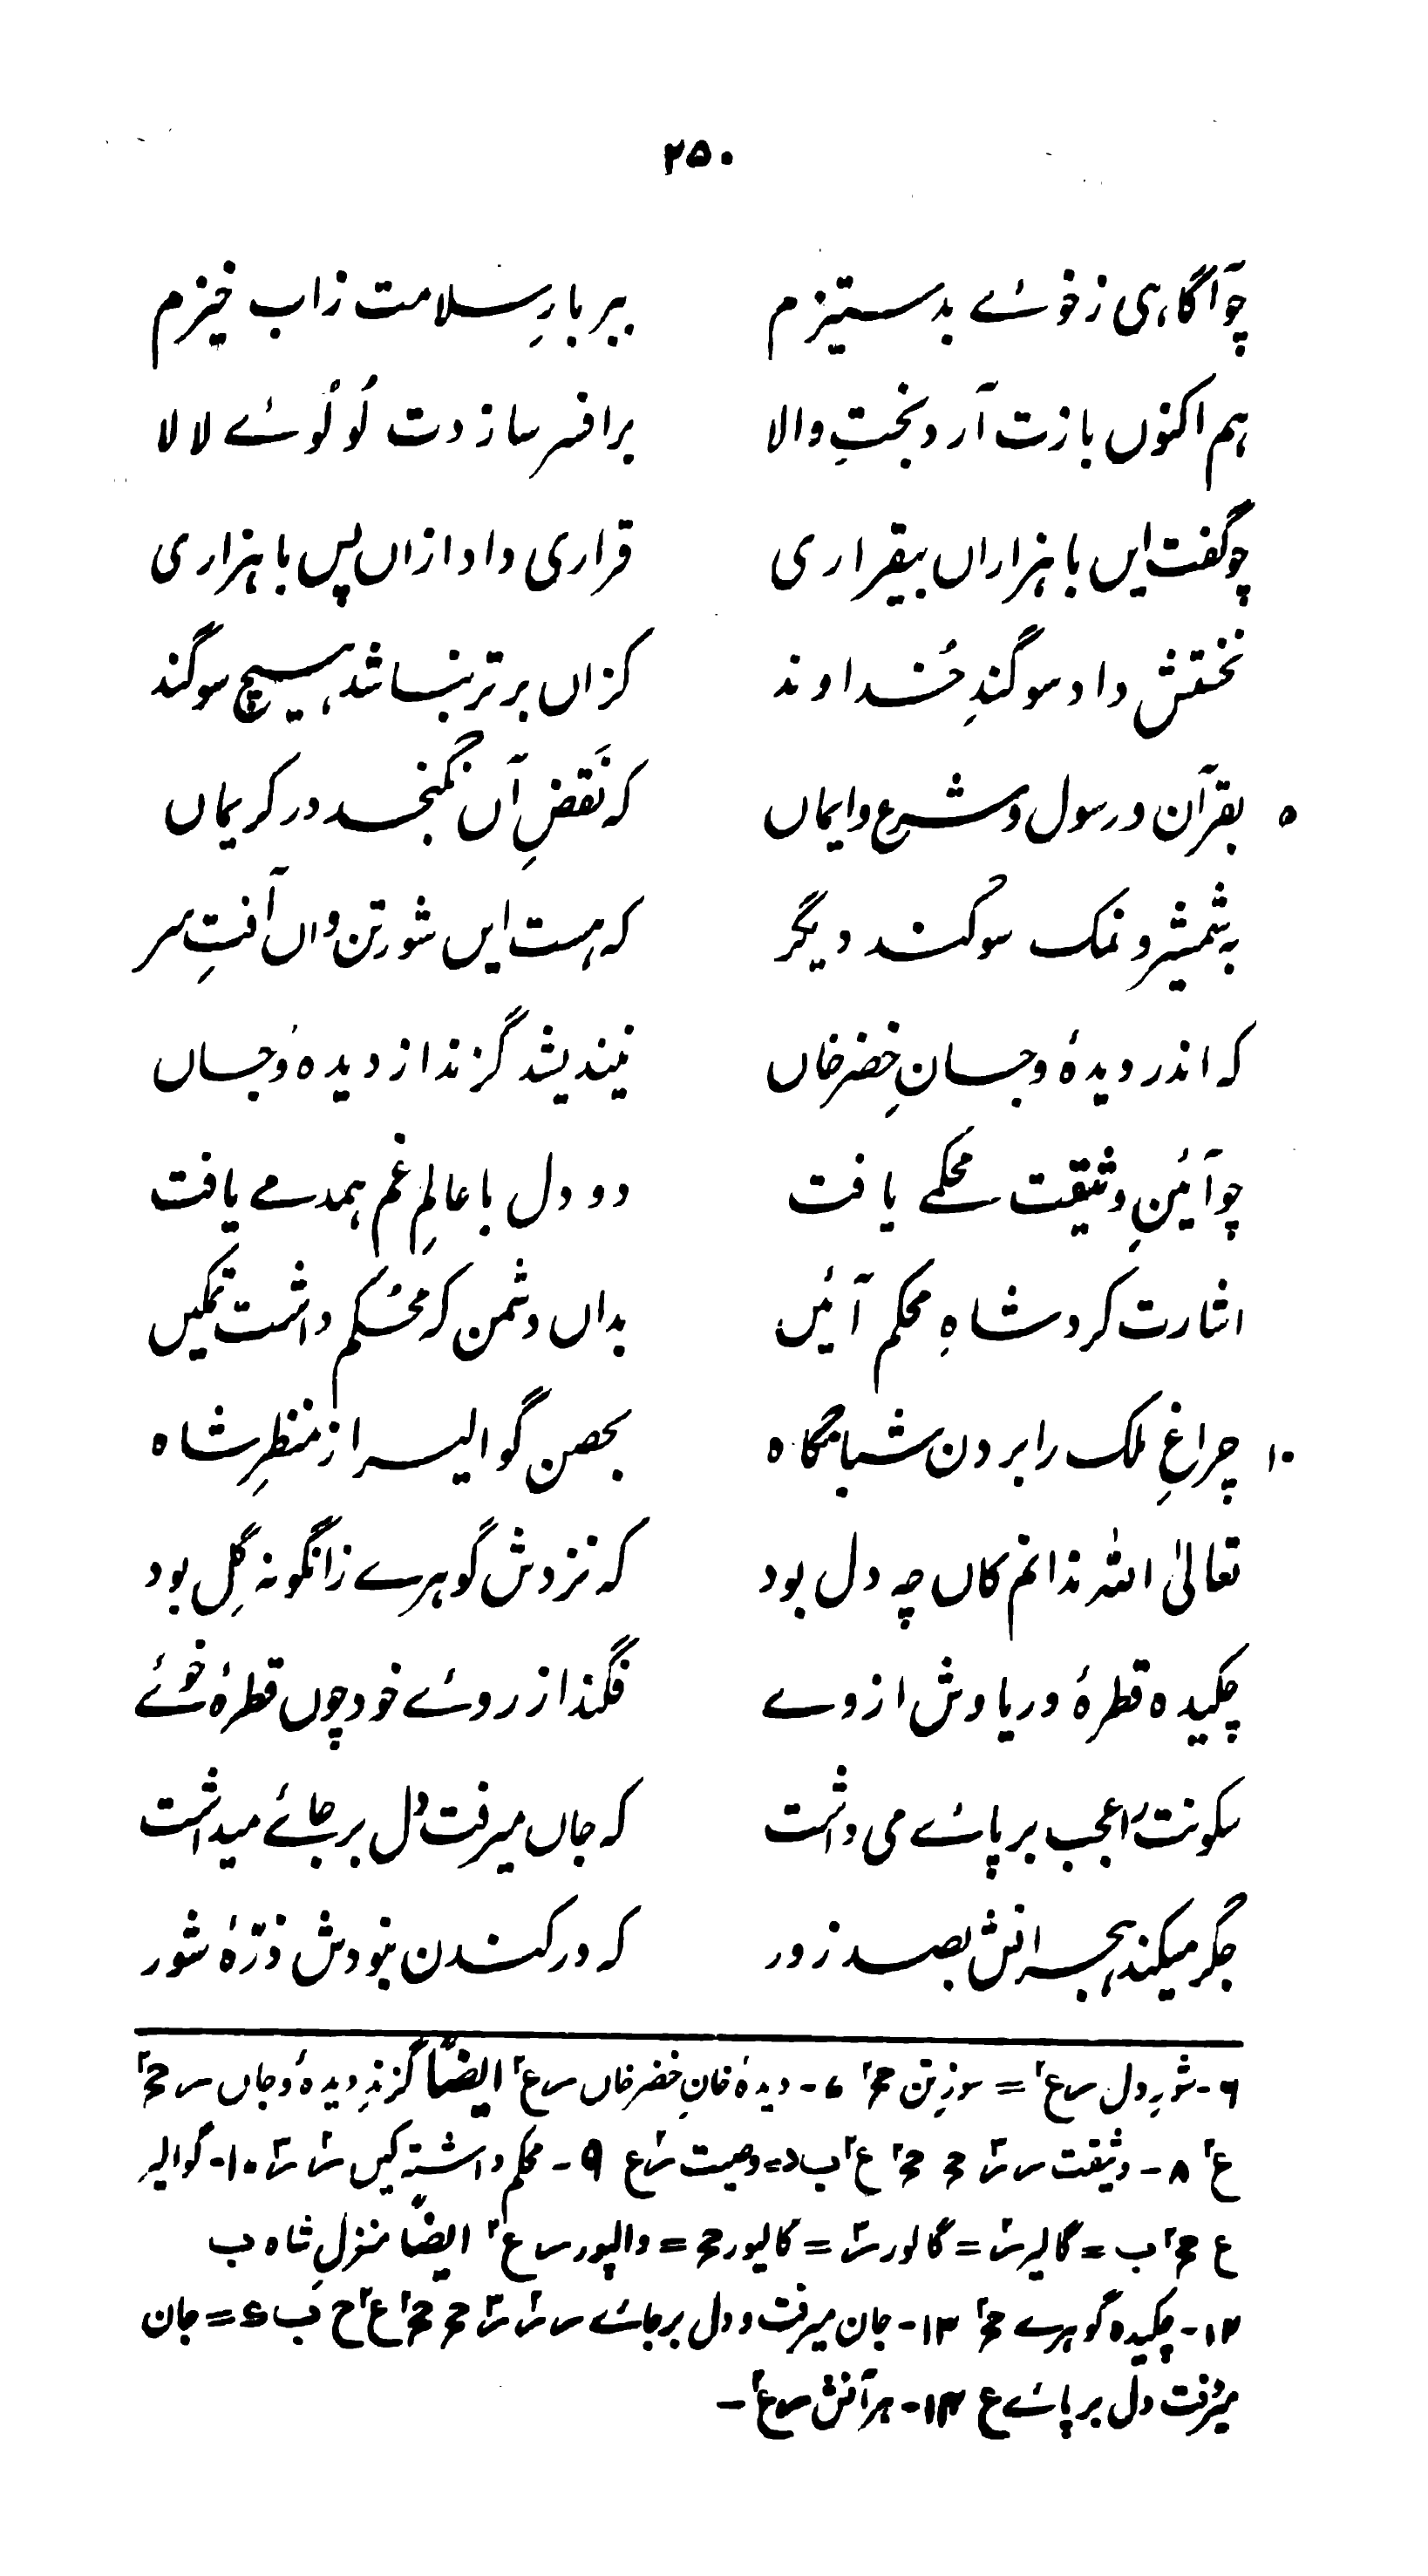 ۲۵۰
چو آگاہی ز خوئے بد ستیزم ببر بارِ سلامت زاب خیزم
ہم اکنوں بازت آرد بختِ والا بر افسر سازدت لُولُوئے لالا
چو گفت ایں با ہزاراں بیقراری قراری داد ازاں پس با ہزاری
نخستش داد سوگندِ خُداوند کزاں برتر نباشد ہیچ سوگند
۵ بقرآن و رسول و شرع و ایماں کہ نَقضِ آں نگنجد در کریماں
بہ شمشیر و نمک سوگند دیگر کہ ہست ایں شور تن واں آفتِ سر
کہ اندر دیدہٗ و جانِ خضر خاں نیندیشد گزند از دیدہٗ و جاں
چو آئینِ وثیقت محکمے یافت دو دل با عالمِ غم ہمدمے یافت
اشارت کرد شاہِ محکم آئیں بداں دشمن کہ محُکم داشت تمکیں
۱۰ چراغِ ملک را بردن شبانگاہ بحصن گوالیر از منظرِ شاہ
تعالیٰ اللہ ندانم کاں چہ دل بود کہ نزدش گوہرے زانگونہ گِل بود
چکیدہ قطرہٗ دریا وش از وے فگند از روئے خود چوں قطرہٗ خوئے
سکونت را عجب بر پائے می داشت کہ جاں میرفت و دل بر جائے میداشت
جگر میکند ہجرانش بصد زور کہ در کندن نبودش ذرّہٗ شور
۶- شورِ دل س ع۲ = سوزِ تن ح۲ ۷- دیدہٗ خانِ خضر خاں س ع۲ ایضًا گزندِ دیدہٗ و جاں س ح۲
ع۲ ۸- وثیقت س ح ح۲ ع۲ ب د = وصیت ع ۹- محکم داشتہ کیں ۱۰- گوالیر
ع ح۲ ب = گالیر = گالور = کالیور ح = والپور س ع۲ ایضًا منزلِ شاہ ب
۱۲- چکیدہ گوہرے ح۲ ۱۳- جان میرفت و دل بر جائے س ح ح۲ ع۲ ح ب = جان
میرفت دل بر پائے ع ۱۴- ہر آنش س ع۲ –